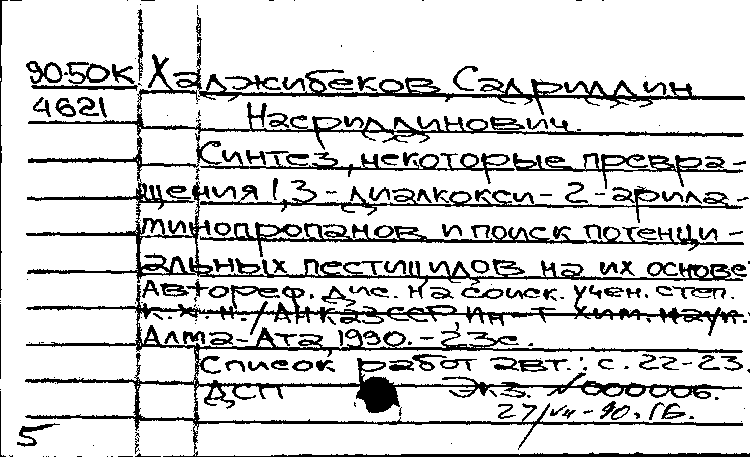 90-50К Хаджибеков, Садриддин
4621 Насриддинович.
Синтез, некоторые превра-
щения 1,3-диалкокси-2-арила-
минопропанов и поиск потенци-
альных пестицидов на их основе
Автореф. дис. на соиск. учен. степ.
к. х. н. / АН КазССР, Ин-т хим. наук.
Алма-Ата, 1990.-23с.
Список работ авт.: с. 22-23.
ДСП Экз. №000006.
27/VII-90. ГБ.
5